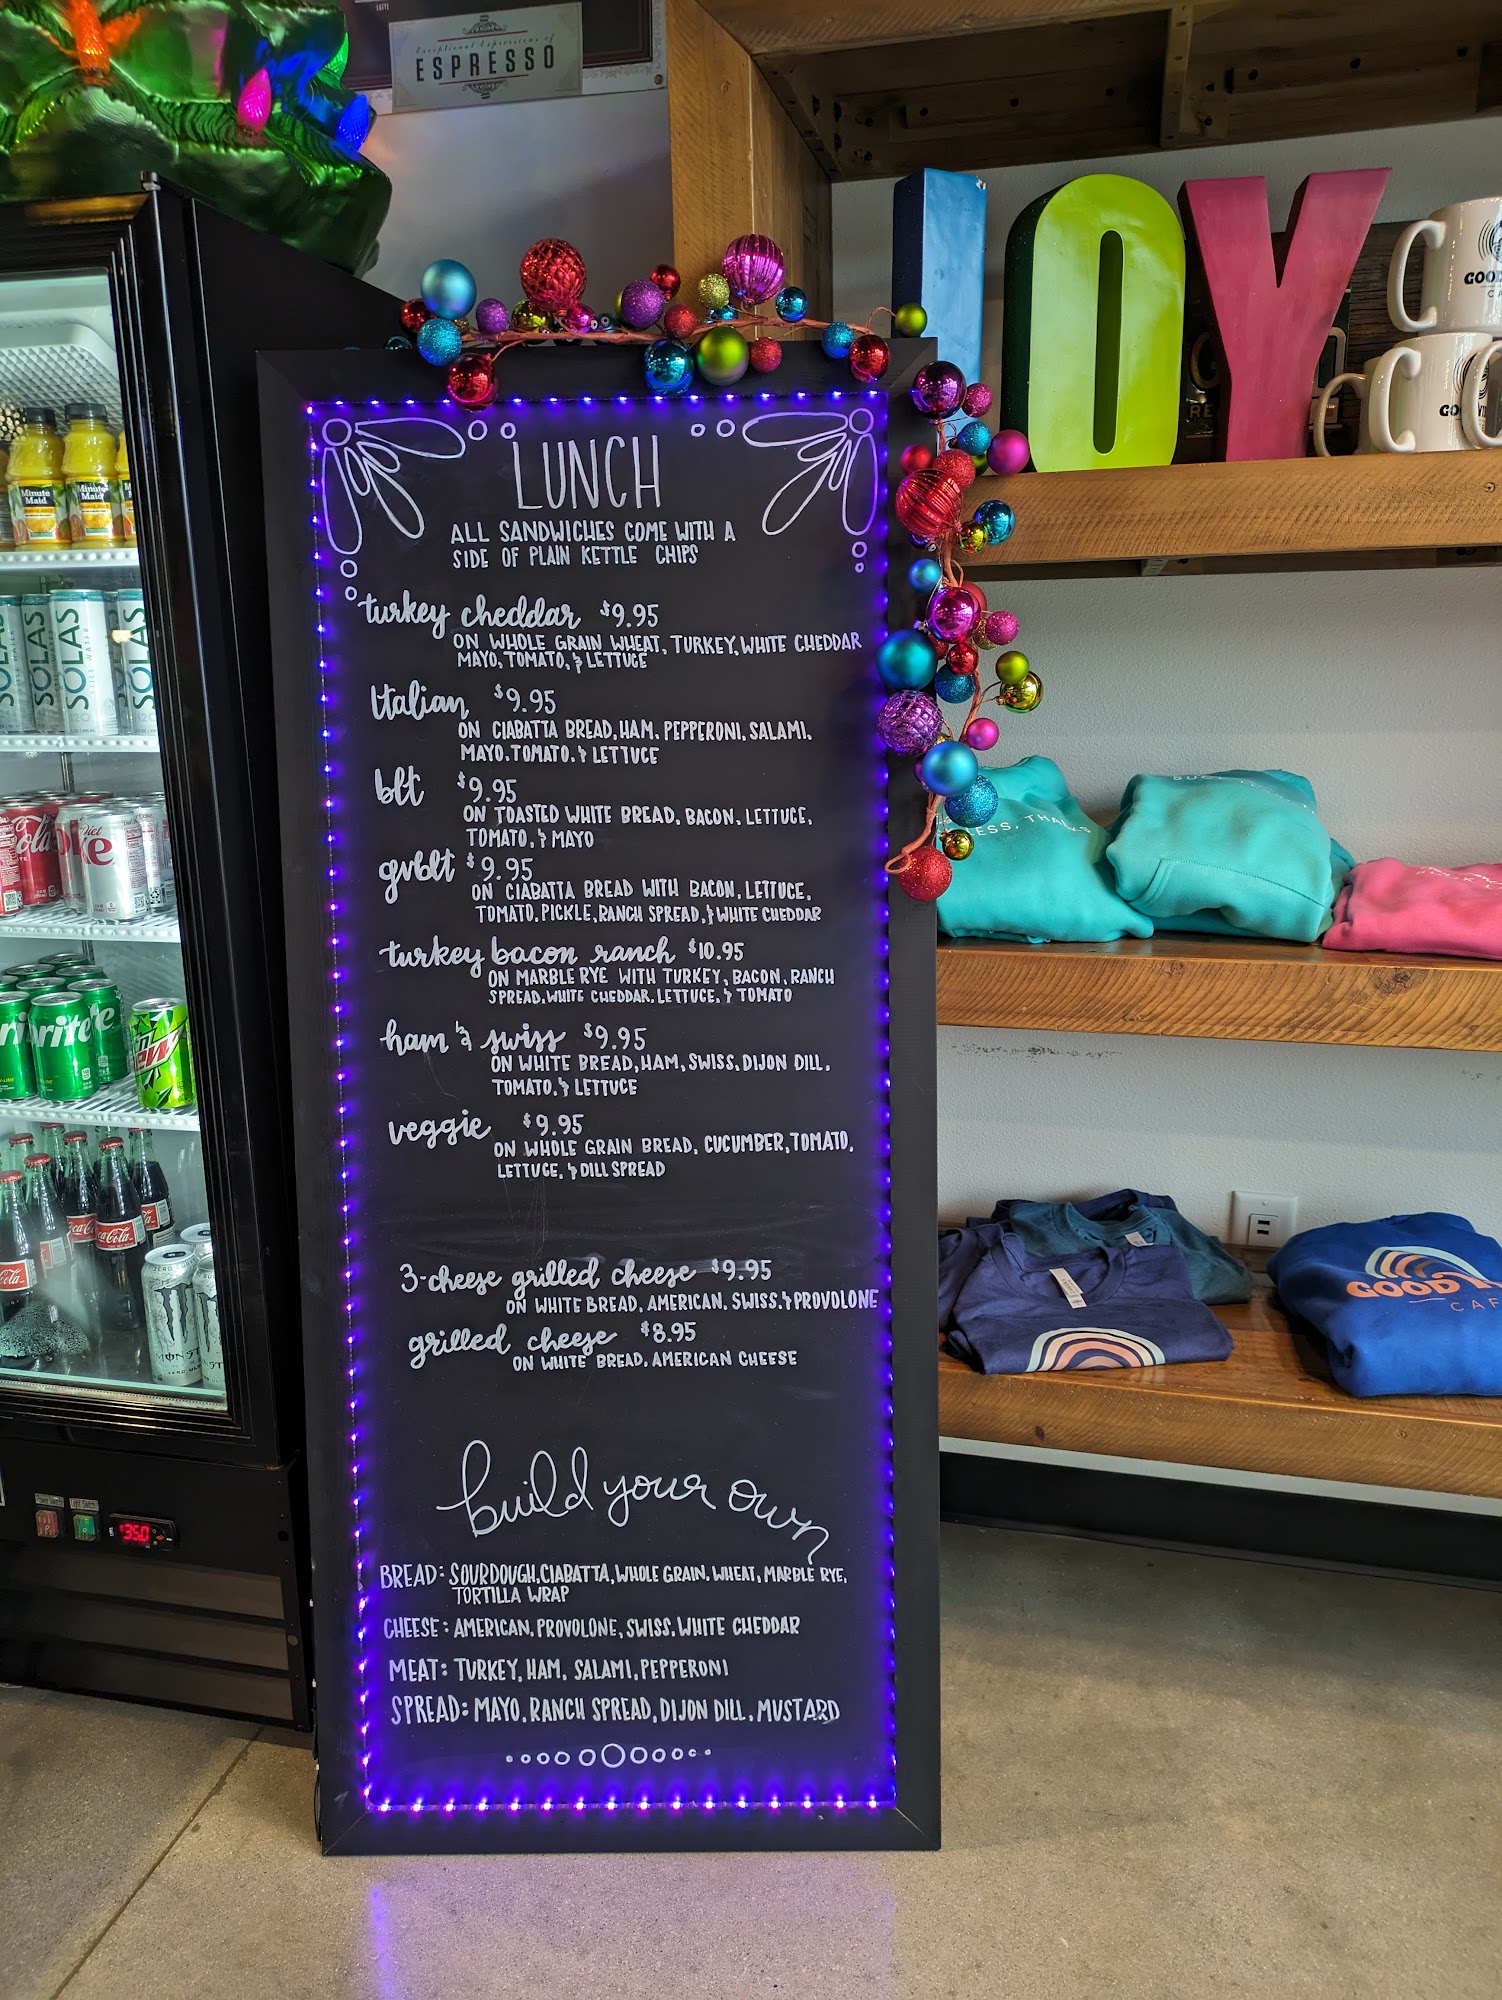 Exceptional Expressions of
ESPRESSO
JOY
LUNCH
ALL SANDWICHES COME WITH A
SIDE OF PLAIN KETTLE CHIPS
turkey cheddar $9.95
ON WHOLE GRAIN WHEAT, TURKEY, WHITE CHEDDAR
MAYO, TOMATO, & LETTUCE
Italian $9.95
ON CIABATTA BREAD, HAM, PEPPERONI, SALAMI,
MAYO, TOMATO, & LETTUCE
blt $9.95
ON TOASTED WHITE BREAD, BACON, LETTUCE,
TOMATO, & MAYO
gvblt $9.95
ON CIABATTA BREAD WITH BACON, LETTUCE,
TOMATO, PICKLE, RANCH SPREAD, & WHITE CHEDDAR
turkey bacon ranch $10.95
ON MARBLE RYE WITH TURKEY, BACON, RANCH
SPREAD, WHITE CHEDDAR, LETTUCE, & TOMATO
ham & swiss $9.95
ON WHITE BREAD, HAM, SWISS, DIJON DILL,
TOMATO, & LETTUCE
veggie $9.95
ON WHOLE GRAIN BREAD, CUCUMBER, TOMATO,
LETTUCE, & DILL SPREAD
3-cheese grilled cheese $9.95
ON WHITE BREAD, AMERICAN, SWISS, & PROVOLONE
grilled cheese $8.95
ON WHITE BREAD, AMERICAN CHEESE
build your own
BREAD: SOURDOUGH, CIABATTA, WHOLE GRAIN, WHEAT, MARBLE RYE,
TORTILLA WRAP
CHEESE: AMERICAN, PROVOLONE, SWISS, WHITE CHEDDAR
MEAT: TURKEY, HAM, SALAMI, PEPPERONI
SPREAD: MAYO, RANCH SPREAD, DIJON DILL, MUSTARD
Minute Maid
Minute Maid
SOLAS
SOLAS
SOLAS
STILL WATER
Diet Coke
Coca-Cola
Coca-Cola
MONSTER
ZERO
Power Switch
Light Switch
35.0
GOOD
GOOD
CAF